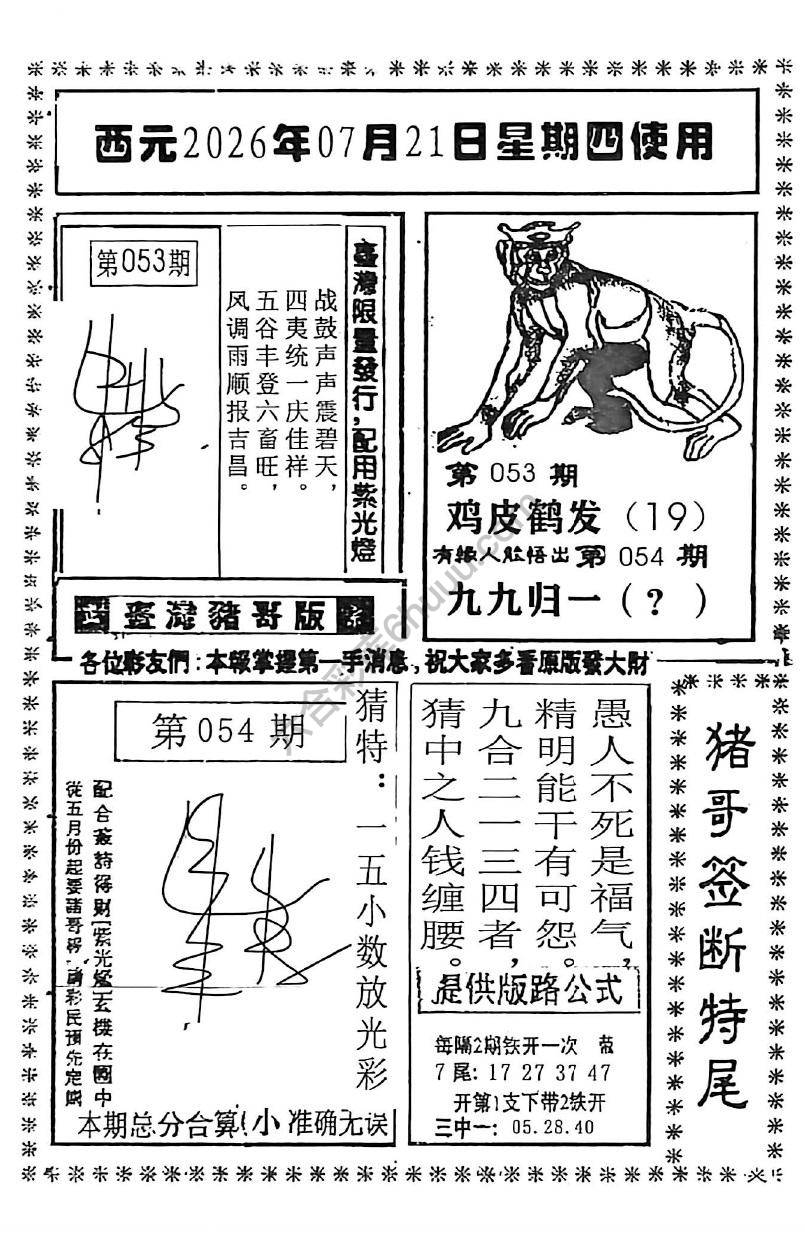 西元2026年07月21日星期四使用
第053期
战鼓声声震碧天，
四夷统一庆佳祥。
五谷丰登六畜旺，
风调雨顺报吉昌。
臺灣限量發行，配用紫光燈
第053期
鸡皮鹤发（19）
有缘人能悟出第054期
九九归一（？）
臺灣豬哥版
各位彩友們：本報掌握第一手消息，祝大家多看原版發大財
第054期
猜特：一五小数放光彩
從五月份起要豬哥
彩民預先定
在圖中
本期总分合算(小 准确无误
愚人不死是福气，
精明能干有可怨。
九合二一三四者，
猜中之人钱缠腰。
提供版路公式
每隔2期铁开一次
7尾：17 27 37 47
开第1支下带2铁开
三中一：05.28.40
猪哥签断特尾
六合彩
6huuu.com